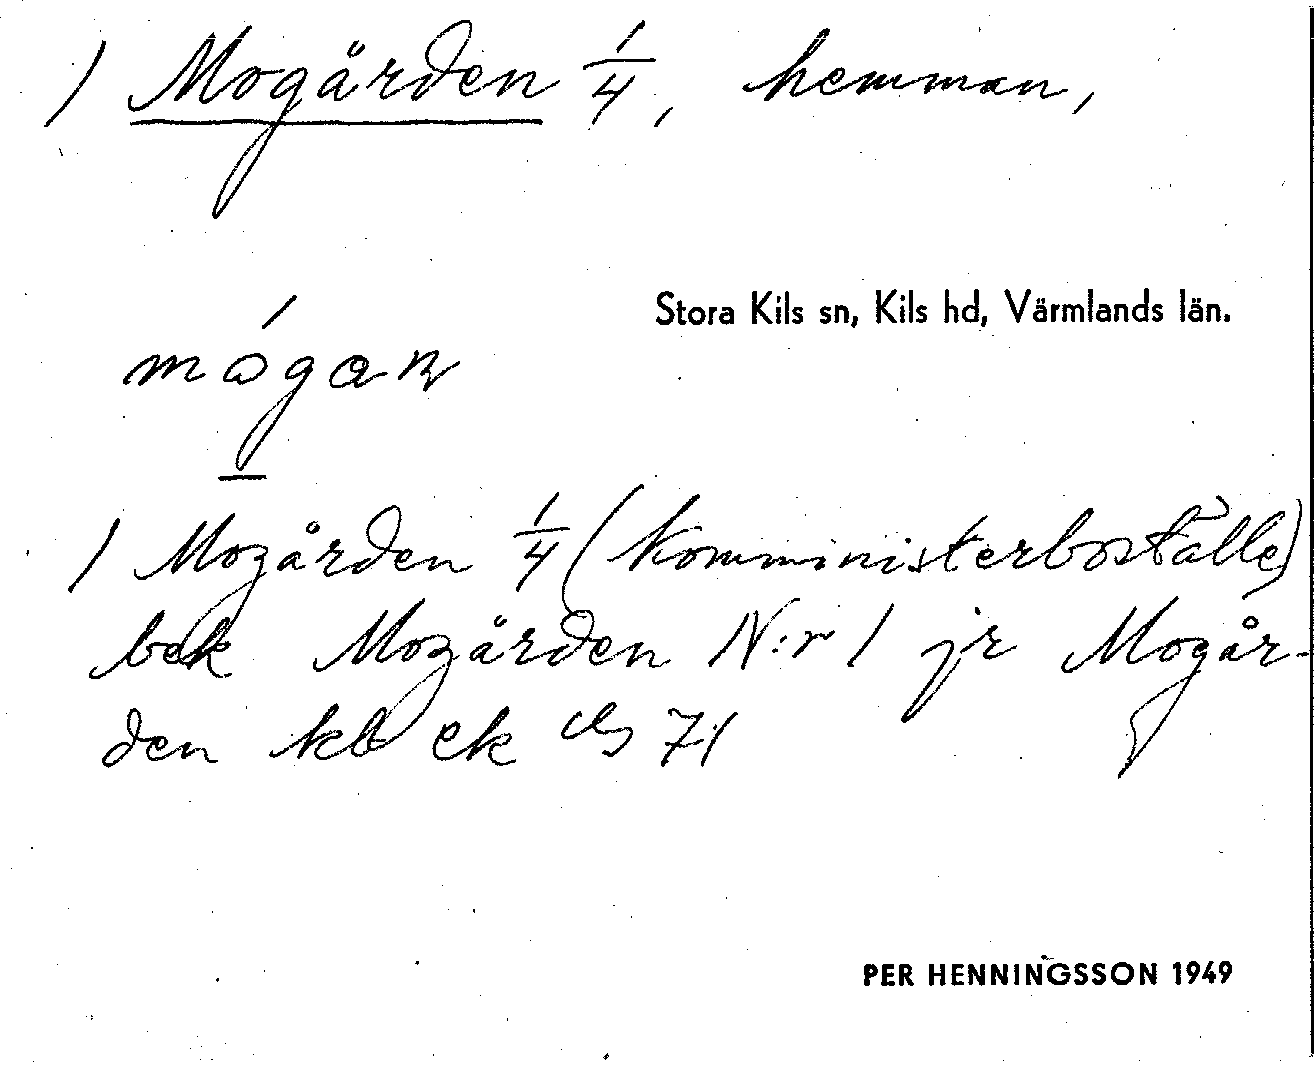 1 Mogården 1/4, hemman,
Stora Kils sn, Kils hd, Värmlands län.
1 Mogården 1/4 (Komministerboställe)
bek Mogården N:r 1 jr Mogår-
den kb ek ds 71
PER HENNINGSSON 1949